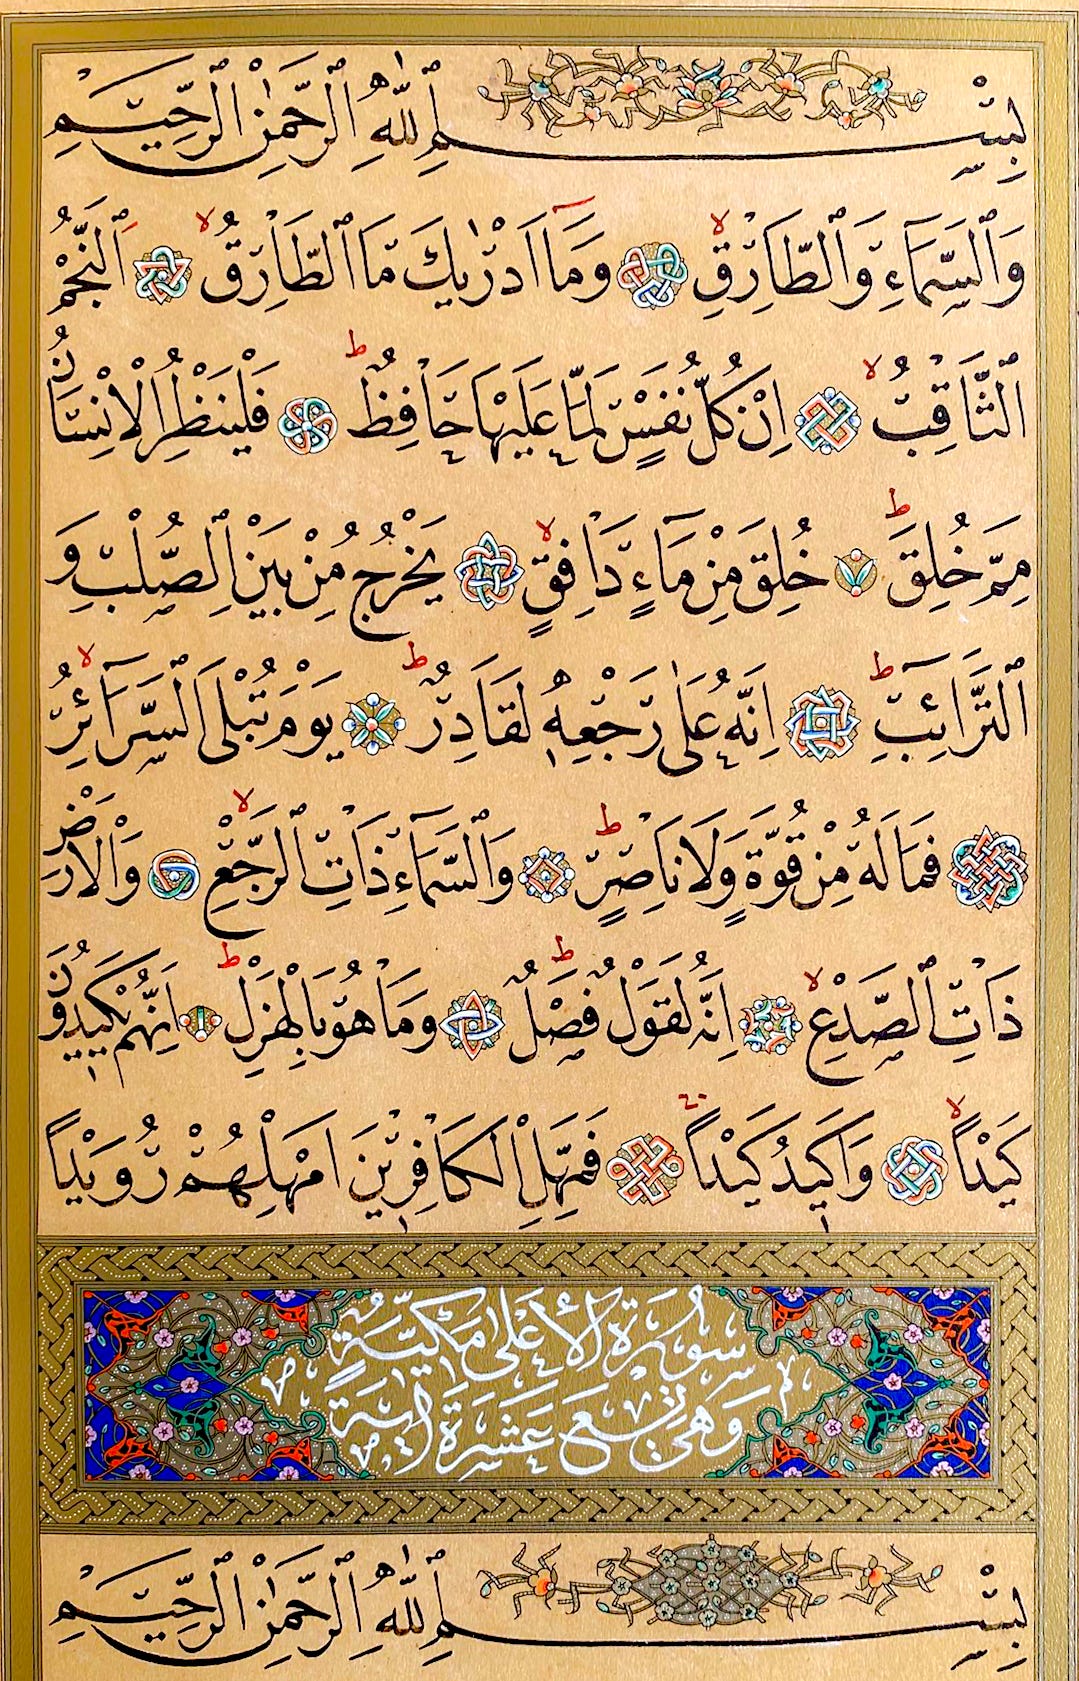 بِسْمِ اللّٰهِ الرَّحْمٰنِ الرَّحِيمِ
وَالسَّمَآءِ وَالطَّارِقِ ۙ وَمَآ اَدْرٰيكَ مَا الطَّارِقُ ۙ اَلنَّجْمُ
الثَّاقِبُ ۙ اِنْ كُلُّ نَفْسٍ لَمَّا عَلَيْهَا حَافِظٌ ط فَلْيَنْظُرِ الْاِنْسَانُ
مِمَّ خُلِقَ ط خُلِقَ مِنْ مَآءٍ دَافِقٍ ۙ يَخْرُجُ مِنْ بَيْنِ الصُّلْبِ وَ
التَّرَآئِبِ ط اِنَّهُ عَلٰى رَجْعِهِ لَقَادِرٌ ط يَوْمَ تُبْلَى السَّرَآئِرُ ۙ
فَمَا لَهُ مِنْ قُوَّةٍ وَلَا نَاصِرٍ ط وَالسَّمَآءِ ذَاتِ الرَّجْعِ ۙ وَالْاَرْضِ
ذَاتِ الصَّدْعِ ۙ اِنَّهُ لَقَوْلٌ فَصْلٌ ط وَمَا هُوَ بِالْهَزْلِ ط اِنَّهُمْ يَكِيدُونَ
كَيْدًا ۙ وَاَكِيدُ كَيْدًا فَمَهِّلِ الْكَافِرِينَ اَمْهِلْهُمْ رُوَيْدًا
سُورَةُ الْأَعْلٰى مَكِّيَّةٌ
وَهِيَ تِسْعَ عَشْرَةَ اٰيَةً
بِسْمِ اللّٰهِ الرَّحْمٰنِ الرَّحِيمِ